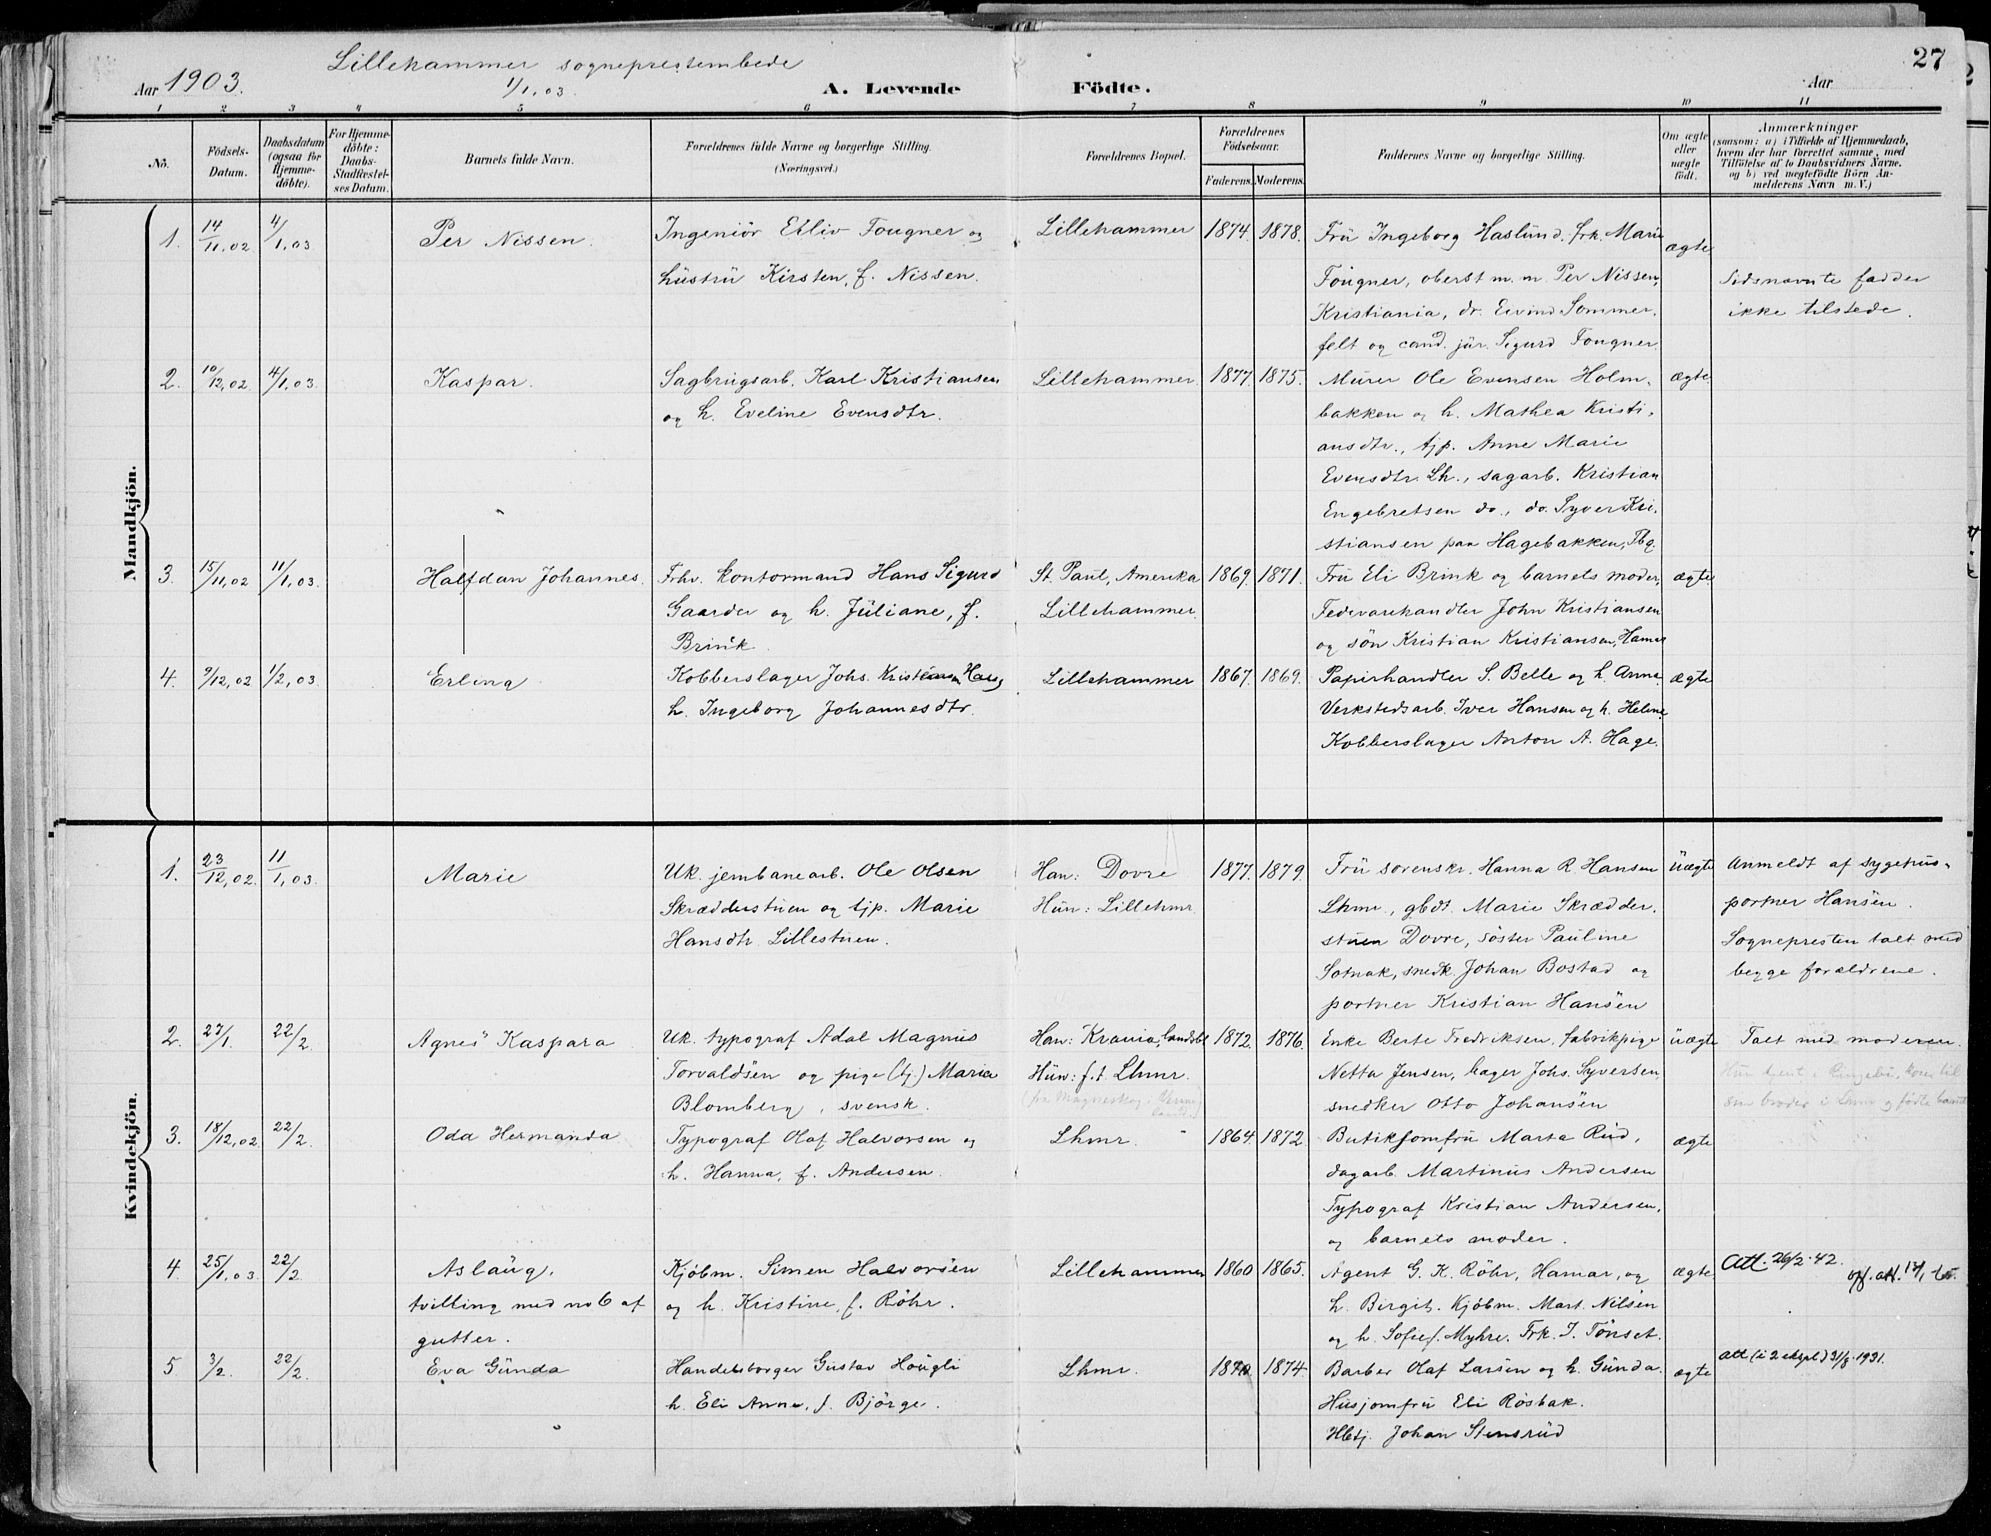 27
Lillehammer sogneprestembede
Aar 1903. 1/1,03. A. Levende Födte. Aar
1 2 3 4 5 6 7 8 9 10 11
No. Födsels-Datum. Daabsdatum (ogsaa for Hjemme-döbte). For Hjemme-döbte: Daabs-Stadfæstel-ses Datum. Barnets fulde Navn. Forældrenes fulde Navne og borgerlige Stilling. (Næringsvei.) Forældrenes Bopæl. Forældrenes Födselsaar. Faderens. Moderens. Faddernes Navne og borgerlige Stilling. Om ægte eller uægte födt. Anmærkninger (saasom: a) i Tilfælde af Hjemmedaab, hvem der har forrettet samme, med Tilföielse af to Daabsvidners Navne. og b) ved uægtefödte Börn An-melderens Navn m. V.)
Mandkjön.
1. 14/11,02 4/1,03 Per Nissen. Ingeniör Eiliv Fougner og Lillehammer 1874. 1878. Frü Ingeborg Haslund. frk. Marie ægte
hüstrü Kirsten, f. Nissen. Fougner, oberst m. m. Per Nissen, Sidsnævnte fadder
Kristiania, dr. Eivind Sommer- ikke tilstede.
felt og cand. jür. Sigurd Fougner.
2. 10/12,02 4/1,03. Kaspar. Sagbrugsarb. Karl Kristiansen Lillehammer 1877. 1875. Mürer Ole Evensen Holm- ægte
og h. Eveline Evensdtr. bakken og h. Mathea Kristi-
ansdtr., tjp. Anne Marie
Evensdtr. Lh., sagarb. Kristian
Engebretsen do., do. Syver Kri-
stiansen paa Hagebakken, Fbg.
3. 15/11,02 11/1,03. Halfdan Johannes. Frhv. kontormand Hans Sigurd St. Paul, Amerika 1869. 1871. Frü Eli Brink og barnets moder, ægte
Gaarder og h. Jüliane, f. Lillehammer. Fedevarehandler John Kristiansen
Brink. og sön Kristian Kristiansen, Hamar
4. 9/12,02 1/2,03. Erling Kobberslager Johs. Kristiansen Hage Lillehammer 1867. 1869. Papirhandler S. Belle og h. Anna ægte
h. Ingeborg Johannesdtr. Verkstedsarb. Iver Hansen og h. Helene
Kobberslager Anton A. Hage.
Kvindekjön.
1. 23/12,02. 11/1,03. Marie Uk. jernbanearb. Ole Olsen Han: Dovre 1877. 1879. Frü sorenskr. Hanna R Hansen üægte Anmeldt af sygehus-
Skrædderstuen og tjp. Marie Hün: Lillehmr. Lhmr., gbdt. Marie Skrædder- portner Hansen.
Hansdtr. Lillestuen. stuen Dovre, söster Pauline Sognepresten talt med
snedk. Johan Bostad og begge forældrene.
portner Kristian Hansen
2. 27/1. 22/2. Agnes Kaspara Uk. typograf Adal Magnus Han: Krania, 1872. 1876. Enke Berte Fredriksen, fabrikpige üægte Talt med moderen.
Torvaldsen og pige (tj.) Maria Hün: f.t. Lhmr. Netta Jensen, bager Johs. Syversen,
Blomberg, svensk. snedker Otto Johansen
3. 18/12,02 22/2. Oda Hermanda Typograf Olaf Halvorsen og Lhmr. 1864. 1872. Butiksjomfrü Marta Rüd, ægte
h. Hanna, f. Andersen. dagarb. Martinius Andersen
Typograf Kristian Andersen,
og barnets moder.
4. 25/1,03. 22/2 Aslaüg, Kjöbm. Simen Halvorsen Lillehammer 1860. 1865. Agent G. K. Röhr, Hamar, og ægte Att. 26/2-42.
tvilling med no 6 af og h. Kristine, f. Röhr. h. Birgit. Kjöbm. Mart. Nilsen
gutter. og h. Sofie f. Myhre. Frk. I. Tönset.
5 3/2. 22/2. Eva Günda Handelsborger Gustav Hougli Lhmr. 1874. Barber Olaf Larsen og h. Günda. ægte att (i 2 ekspl) 31/8-1931.
h. Eli Anne, f. Björge. Hüsjomfrü Eli Rösbak.
Hbtj. Johan Stensrüd